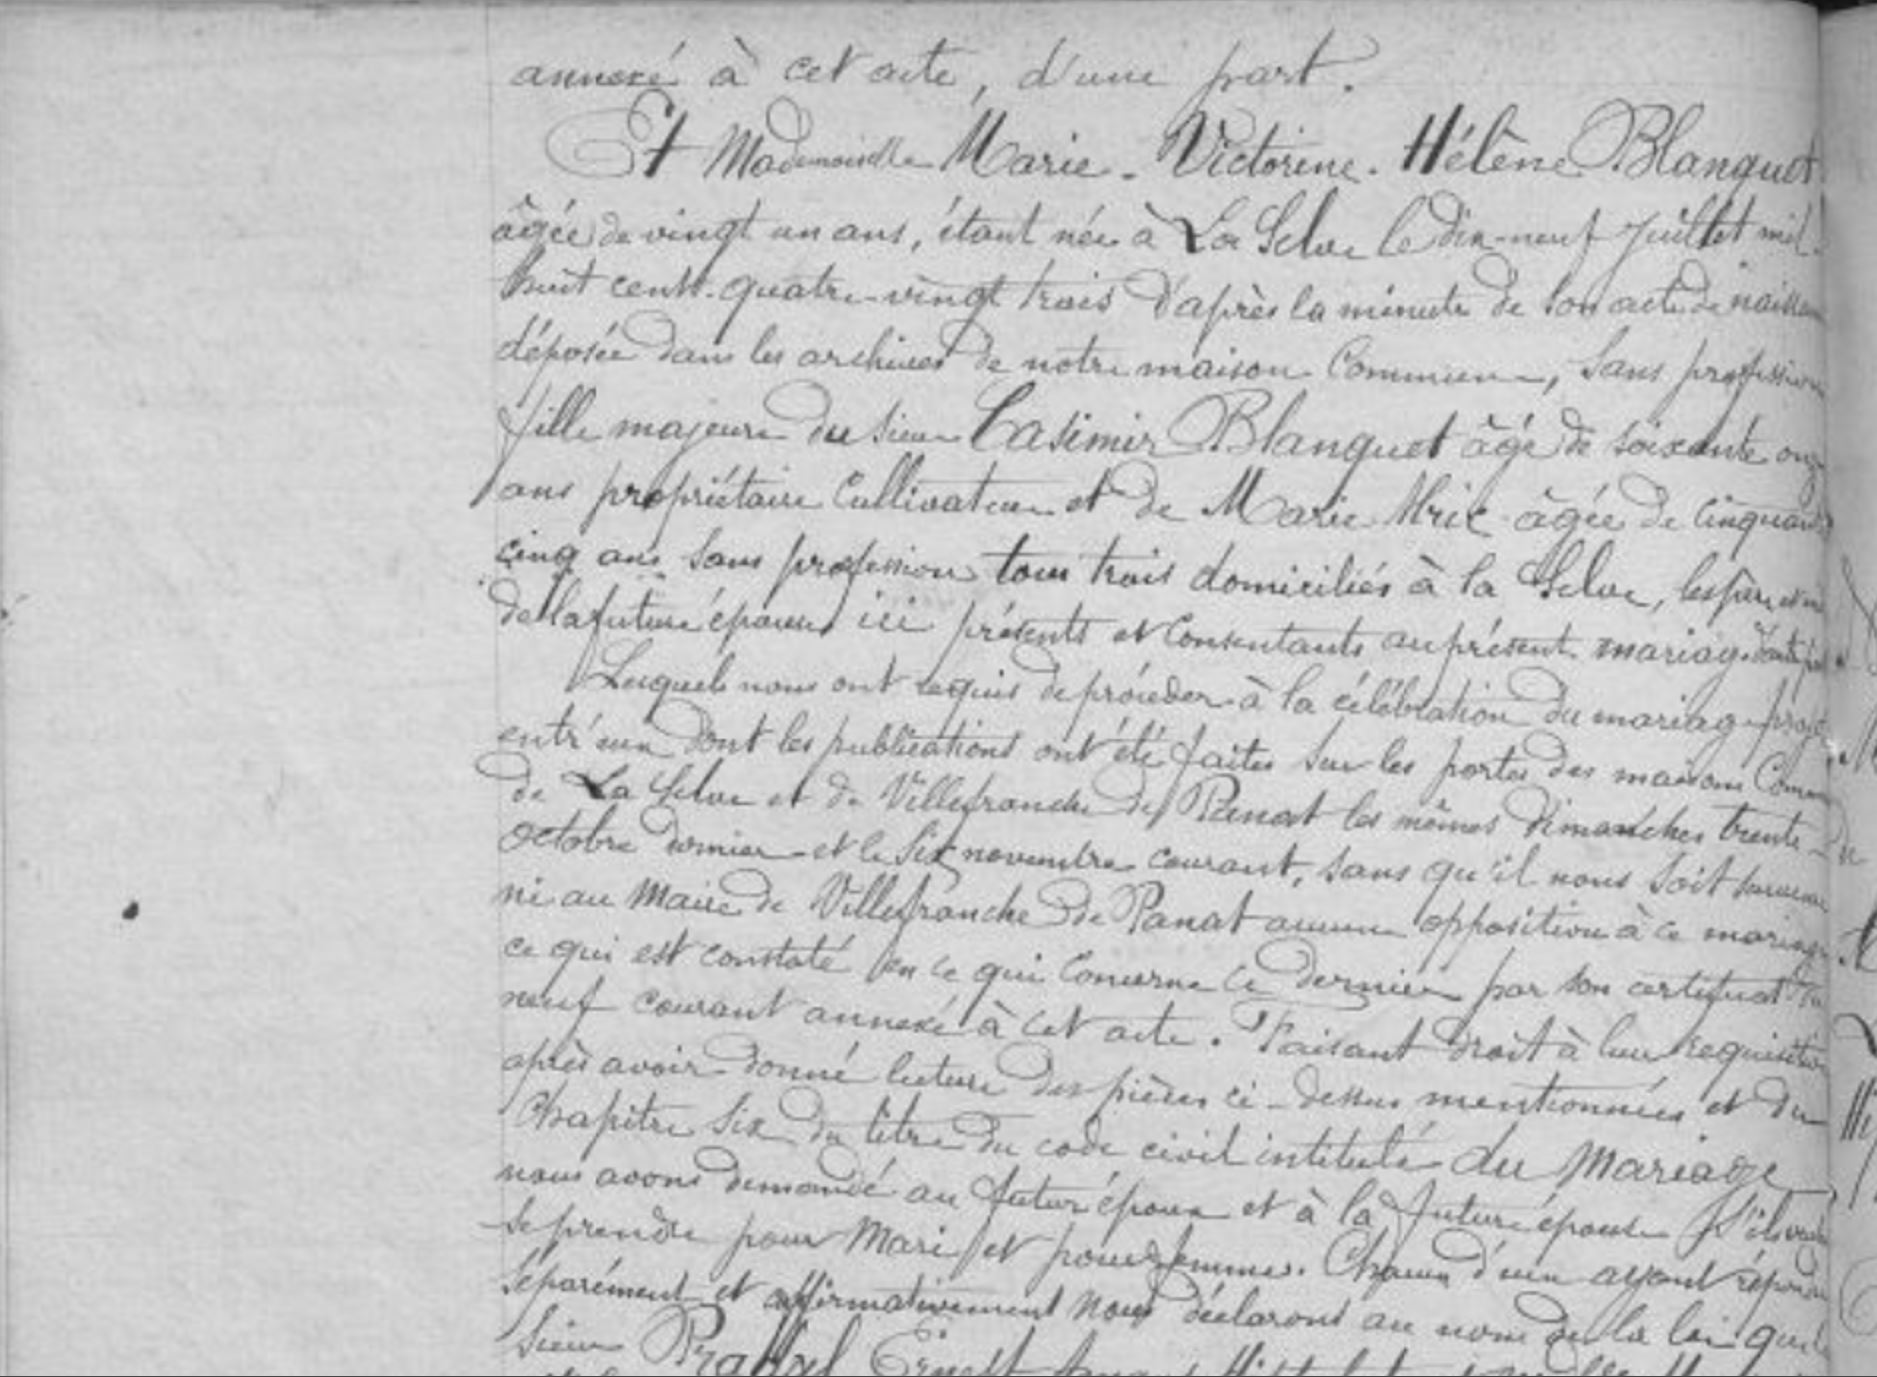 annexé à cet acte, d'une part.
Et Mademoiselle Marie-Victorine-Hélène Blanquet
âgée de vingt un ans, étant née à La Selve le dix-neuf Juillet mil
huit cent quatre-vingt trois d'après la minute de son acte de naissan
déposée dans les archives de notre maison Commune, sans profession
fille majeure du sieur Casimir Blanquet âgé de soixante onze
ans propriétaire Cultivateur et de Marie âgée de cinquante
cinq ans sans profession tous trois domiciliés à la Selve, les père et
de la future épouse ici présents et consentants au présent mariage d'autre part
Lesquels nous ont requis de procéder à la célébration du mariage projeté
entr'eux dont les publications ont été faites sur les portes des maisons Commu
de La Selve et de Villefranche de Panat les mêmes dimanches trente
octobre dernier et le six novembre courant, sans qu'il nous soit survenu
ni au Maire de Villefranche de Panat aucune opposition à ce mariage
ce qui est constaté en ce qui concerne ce dernier par son certificat du
neuf courant annexé à cet acte. Faisant droit à leur requisition
après avoir donné lecture des pièces ci-dessus mentionnées et du
Chapitre six du titre du code civil intitulé du Mariage
nous avons demandé au futur époux et à la future épouse s'ils veulent
se prendre pour Mari et pour femme. Chacun d'eux ayant répondu
séparément et affirmativement nous déclarons au nom de la loi que le
sieur Ernest